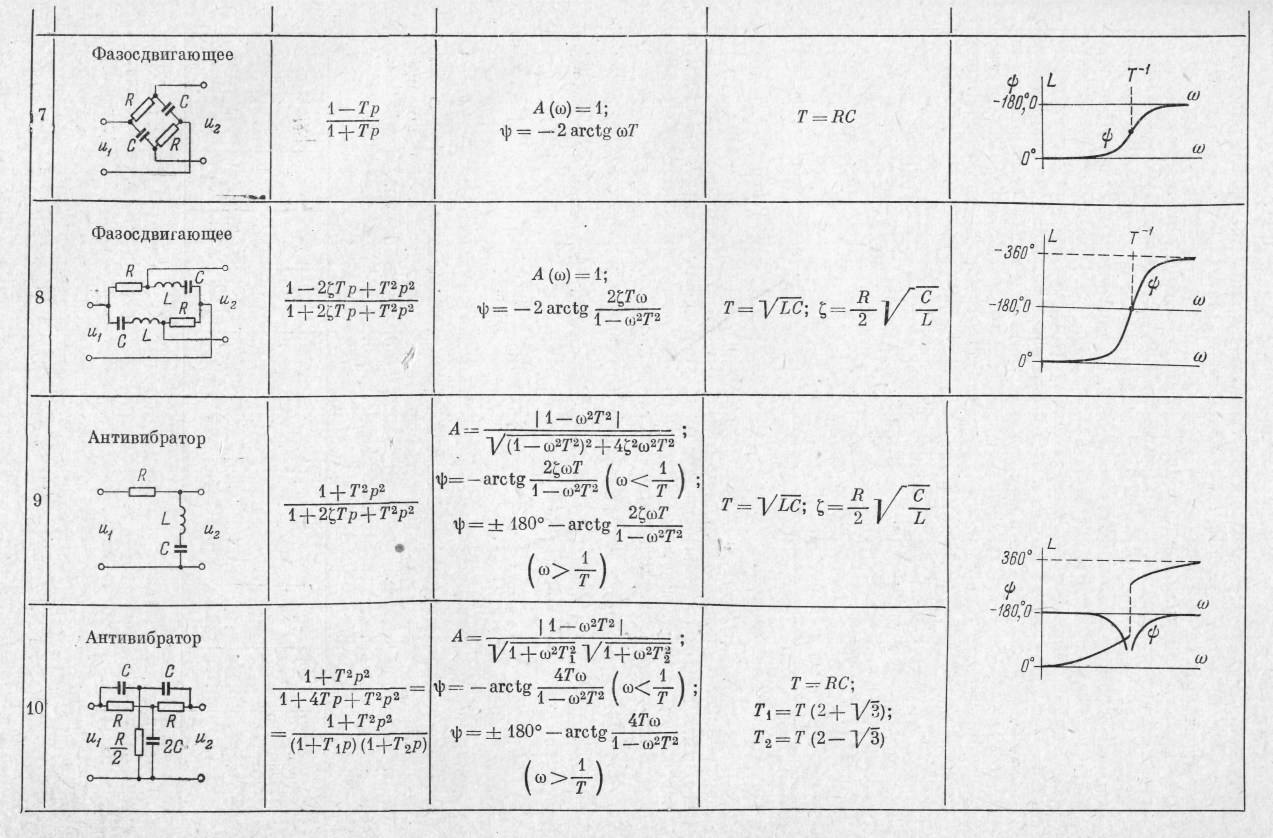 7
Фазосдвигающее
R
C
u₂
u₁
C
R
(1 − Tp) / (1 + Tp)
A (ω) = 1;
ψ = −2 arctg ωT
T = RC
ψ L T⁻¹
−180,° 0 ω
ψ
0° ω
8
Фазосдвигающее
R
C
L
u₂
R
u₁ C L
(1 − 2ζTp + T²p²) / (1 + 2ζTp + T²p²)
A (ω) = 1;
ψ = −2 arctg 2ζTω / (1 − ω²T²)
T = √LC; ζ = R/2 √(C/L)
L T⁻¹
−360°
ψ
−180,° 0
0° ω
9
Антивибратор
R
u₁ L u₂
C
(1 + T²p²) / (1 + 2ζTp + T²p²)
A = | 1 − ω²T² | / √((1 − ω²T²)² + 4ζ²ω²T²) ;
ψ = −arctg 2ζωT / (1 − ω²T²) (ω < 1/T) ;
ψ = ± 180° − arctg 2ζωT / (1 − ω²T²)
(ω > 1/T)
T = √LC; ζ = R/2 √(C/L)
L
360°
ψ
−180,° 0 ω
ψ
0° ω
10
Антивибратор
C C
R R
u₁ R/2 2C u₂
(1 + T²p²) / (1 + 4Tp + T²p²) =
= (1 + T²p²) / ((1+T₁p) (1+T₂p))
A = | 1 − ω²T² | / (√(1 + ω²T₁²) √(1 + ω²T₂²)) ;
ψ = −arctg 4Tω / (1 − ω²T²) (ω < 1/T) ;
ψ = ± 180° − arctg 4Tω / (1 − ω²T²)
(ω > 1/T)
T = RC;
T₁ = T (2 + √3);
T₂ = T (2 − √3)